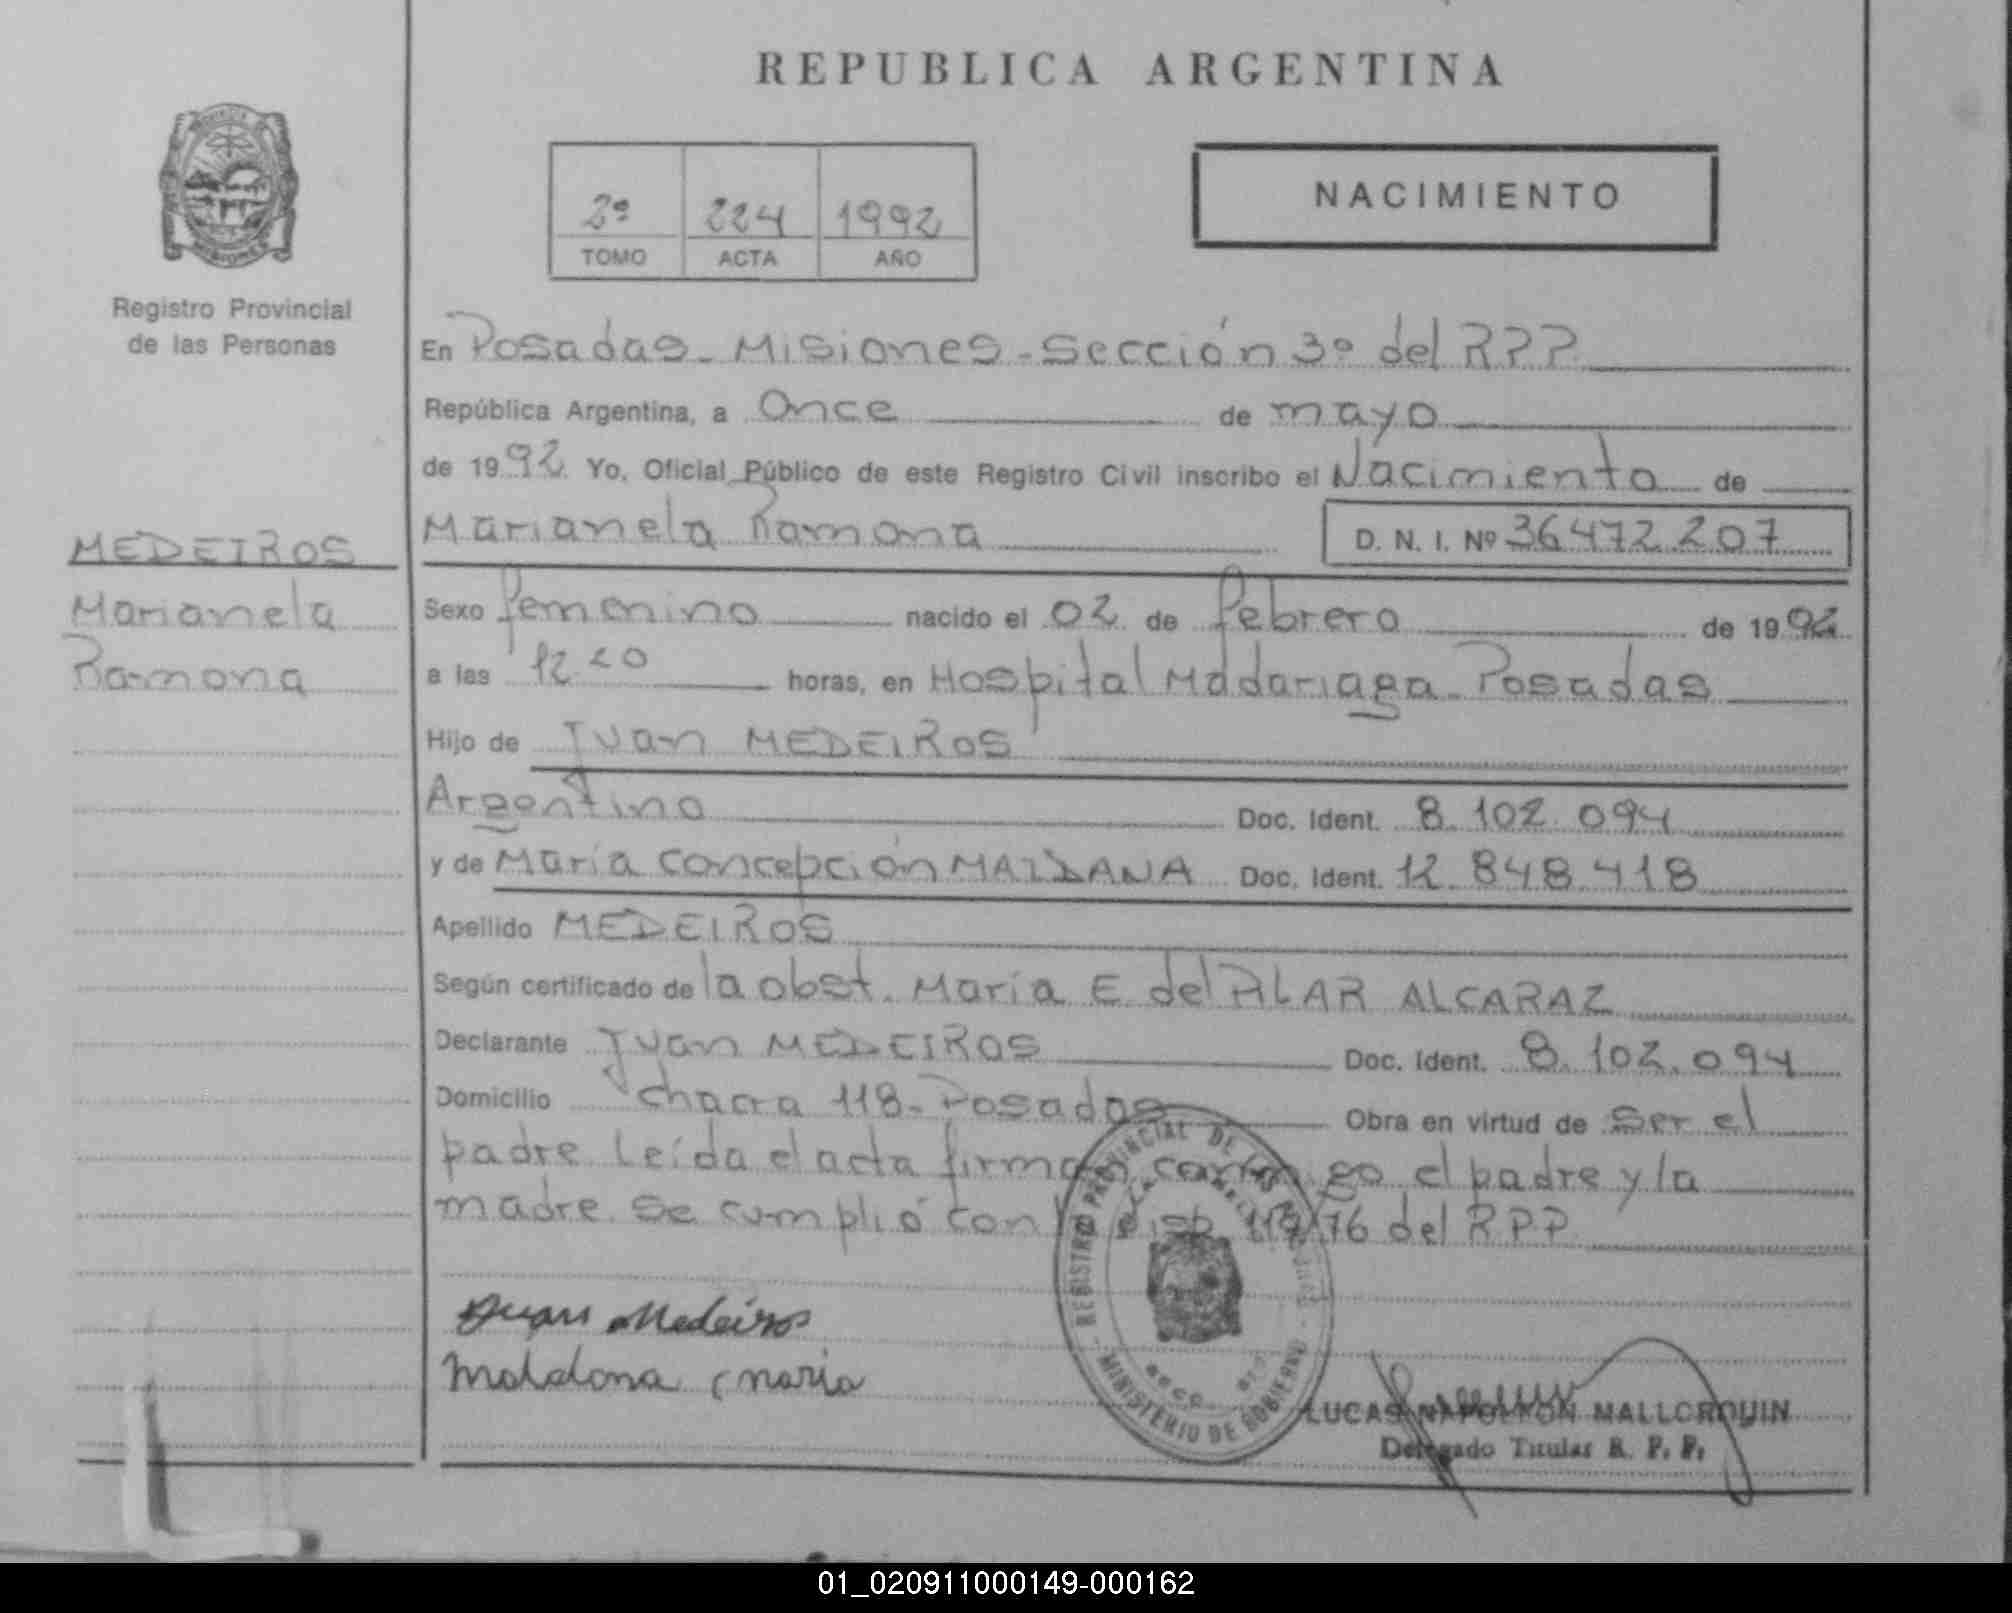 REPUBLICA ARGENTINA
NACIMIENTO
2º 224 1992
TOMO ACTA AÑO
Registro Provincial
de las Personas
MEDEIROS
Marianela
Ramona
En Posadas - Misiones - Sección 3º del RPP
República Argentina, a Once de mayo
de 1992. Yo, Oficial Público de este Registro Civil inscribo el Nacimiento de
Marianela Ramona D. N. I. Nº 36.472.207
Sexo femenino nacido el 02 de febrero de 1992
a las 12.20 horas, en Hospital Madariaga - Posadas
Hijo de Juan MEDEIROS
Argentino Doc. Ident. 8.102.094
y de María Concepción MALDANA Doc. Ident. 12.848.418
Apellido MEDEIROS
Según certificado de la obst. María E. del PILAR ALCARAZ
Declarante Juan MEDEIROS Doc. Ident. 8.102.094
Domicilio Chacra 118 - Posadas Obra en virtud de ser el
padre. Leída el acta firman conmigo el padre y la
madre. Se cumplió con la Disp. 119/76 del RPP
REGISTRO PROVINCIAL DE LAS
MINISTERIO DE GOBIERNO
Juan Medeiros
Maldona Maria
LUCAS NAPOLEON MALLORQUIN
Delegado Titular R. P. P.
01_020911000149-000162